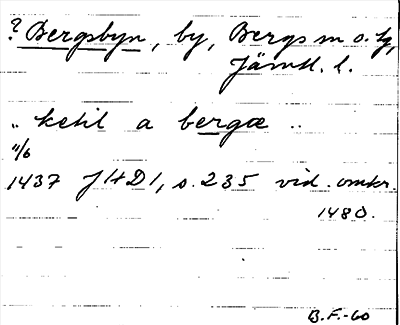 ? Bergsbyn, by, Bergs sn o. tg,
Jämtl. l.
.. ketil a bergæ ..
11/6
1437 JHD1, s. 235 vid. omkr.
1480.
B.F.-60